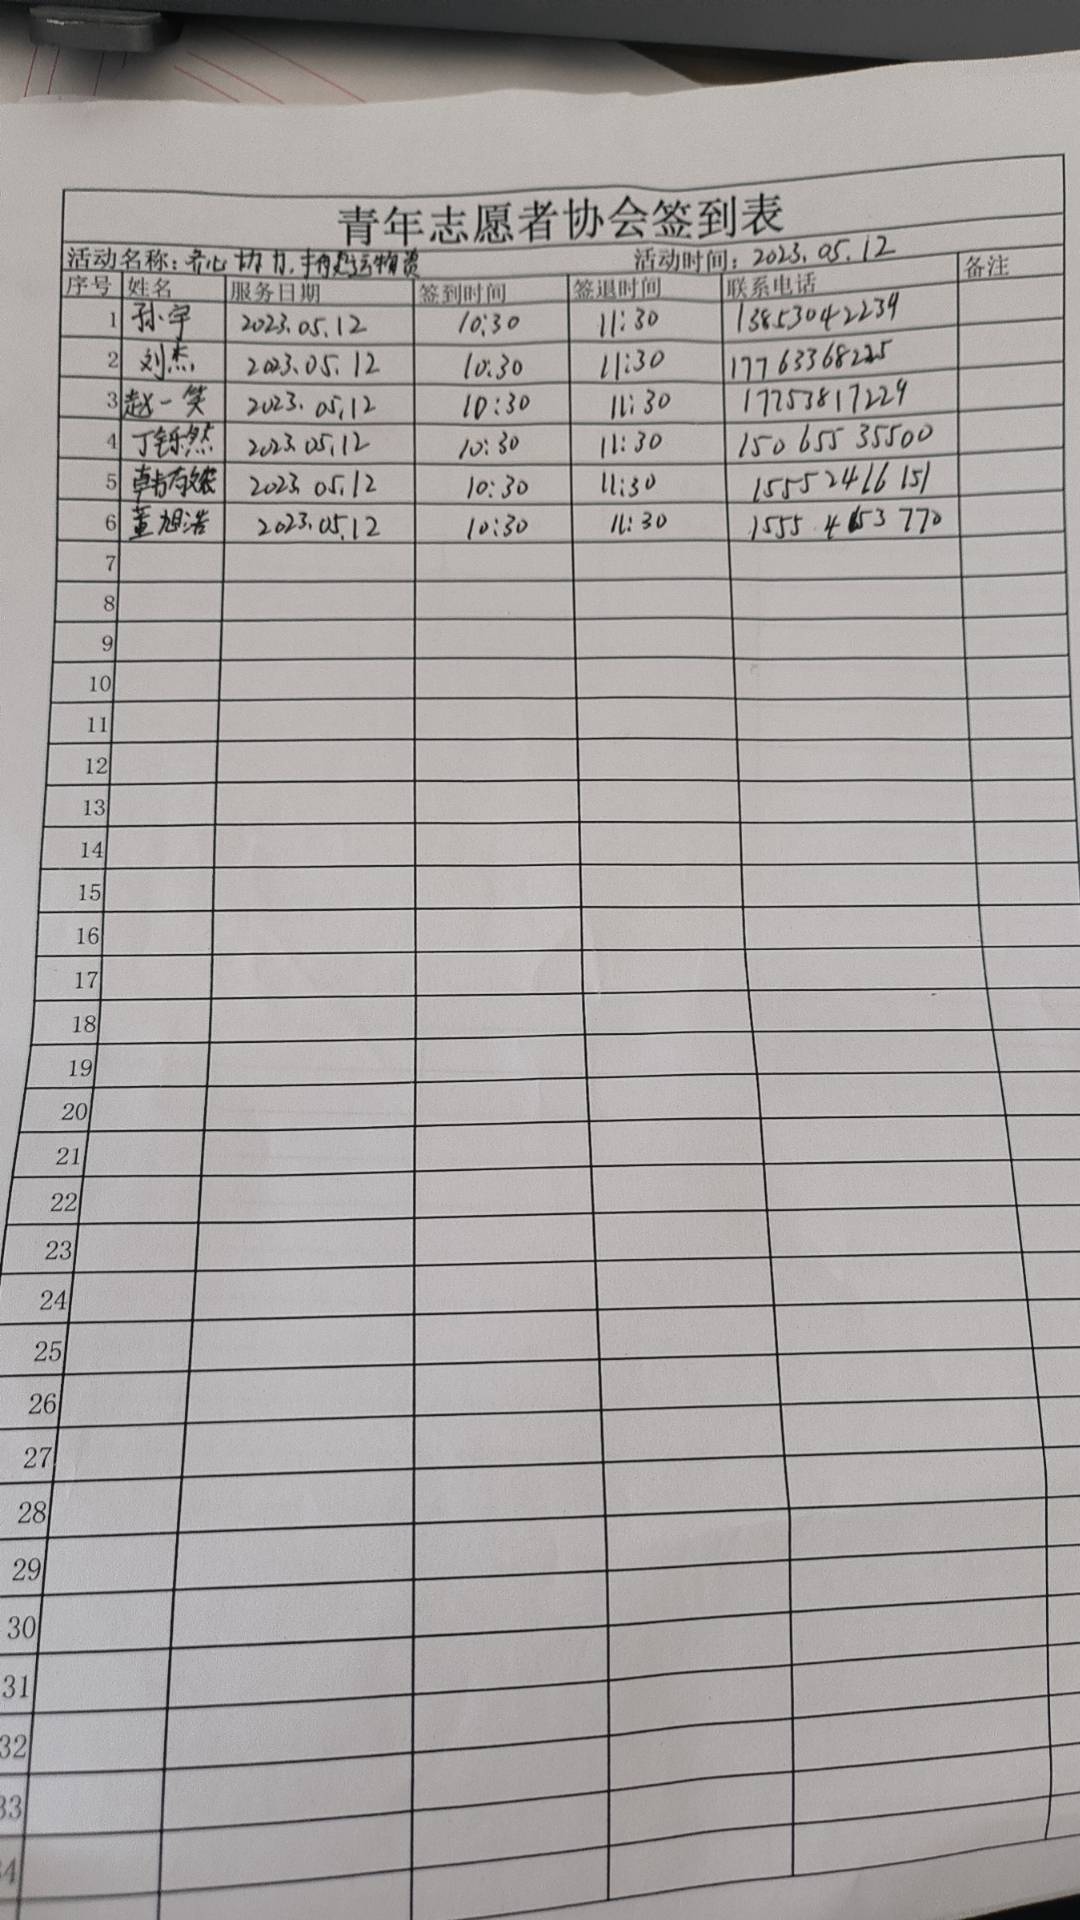 青年志愿者协会签到表
活动名称：齐心协力，搬运物资 活动时间：2023.05.12
序号 姓名 服务日期 签到时间 签退时间 联系电话 备注
1 孙宇 2023.05.12 10:30 11:30 13853042239
2 刘杰 2023.05.12 10:30 11:30 17763368225
3 赵一笑 2023.05.12 10:30 11:30 17753817229
4 丁铄然 2023.05.12 10:30 11:30 15065535500
5 2023.05.12 10:30 11:30 15552416151
6 董旭浩 2023.05.12 10:30 11:30
7
8
9
10
11
12
13
14
15
16
17
18
19
20
21
22
23
24
25
26
27
28
29
30
31
32
33
34